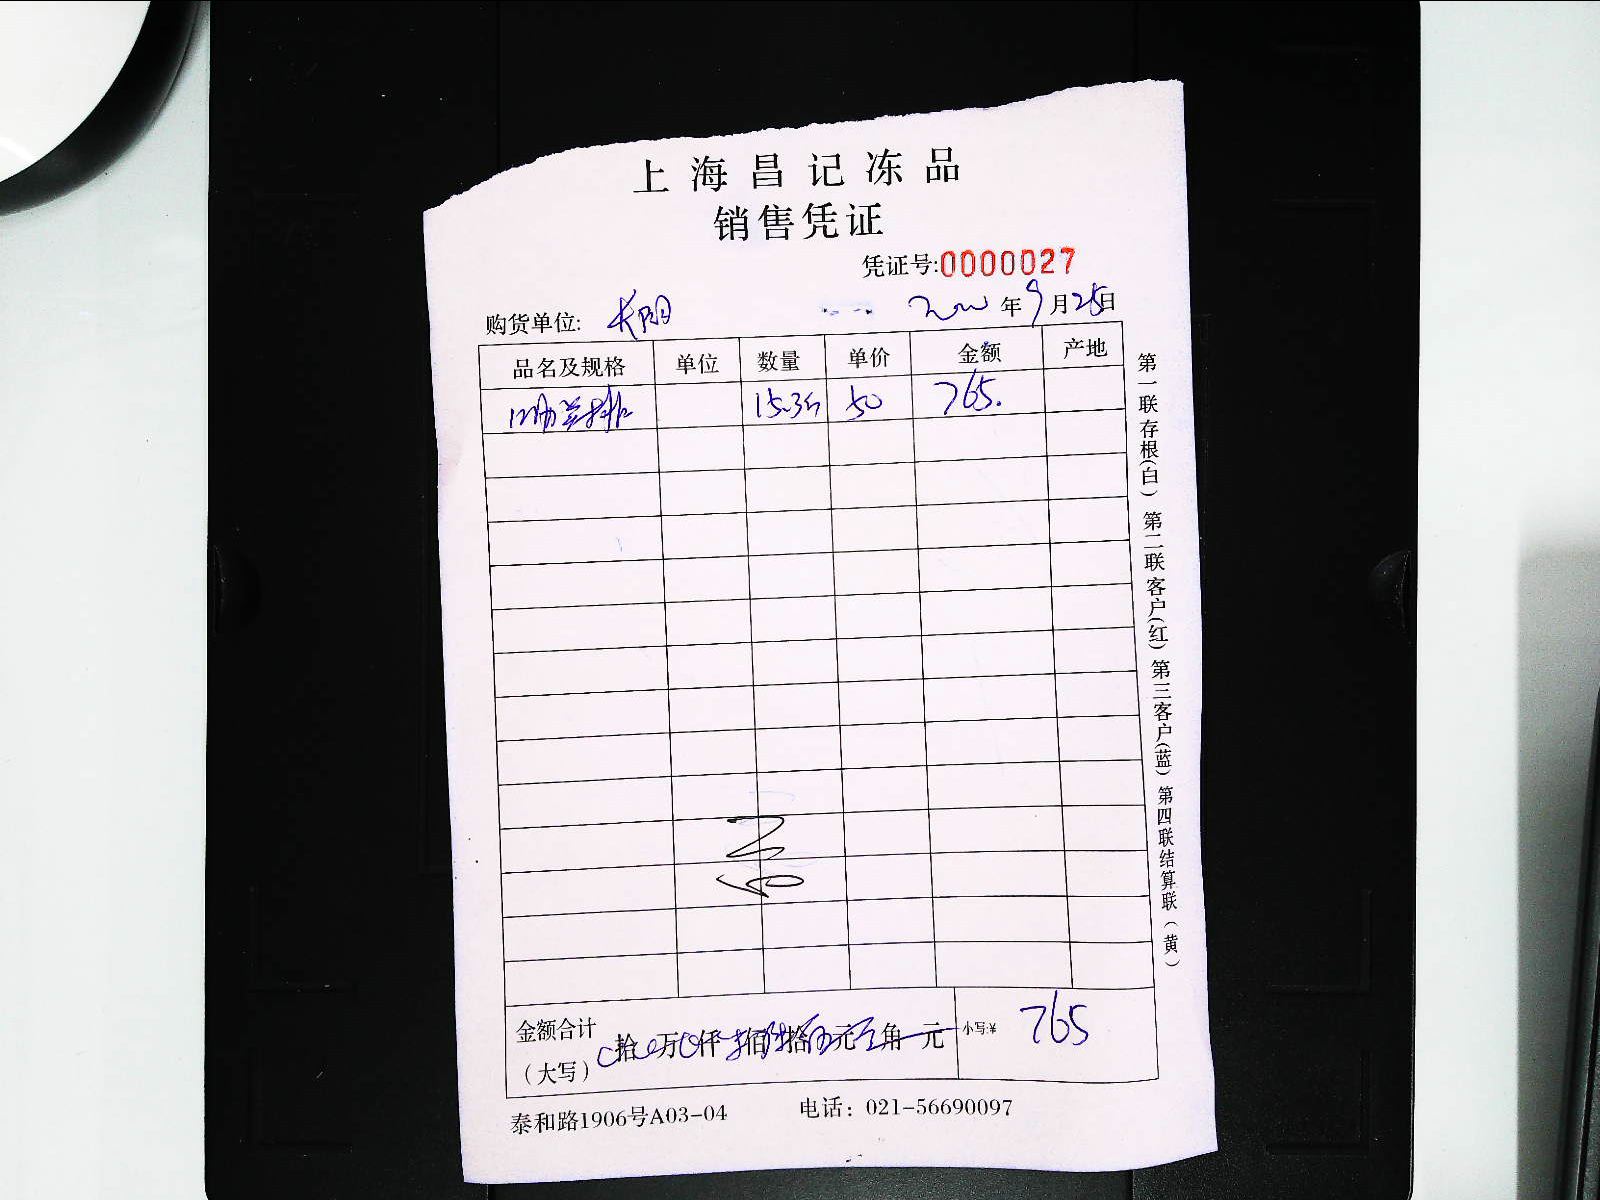 上海昌记冻品
销售凭证
凭证号:0000027
购货单位: 年9月25日
品名及规格 单位 数量 单价 金额 产地
12肋羊排 15.3斤 50 765.
金额合计(大写) 拾 万 仟 佰 拾 元 角 元 小写:¥ 765
泰和路1906号A03-04 电话: 021-56690097
第一联存根(白) 第二联客户(红) 第三客户(蓝) 第四联结算联(黄)